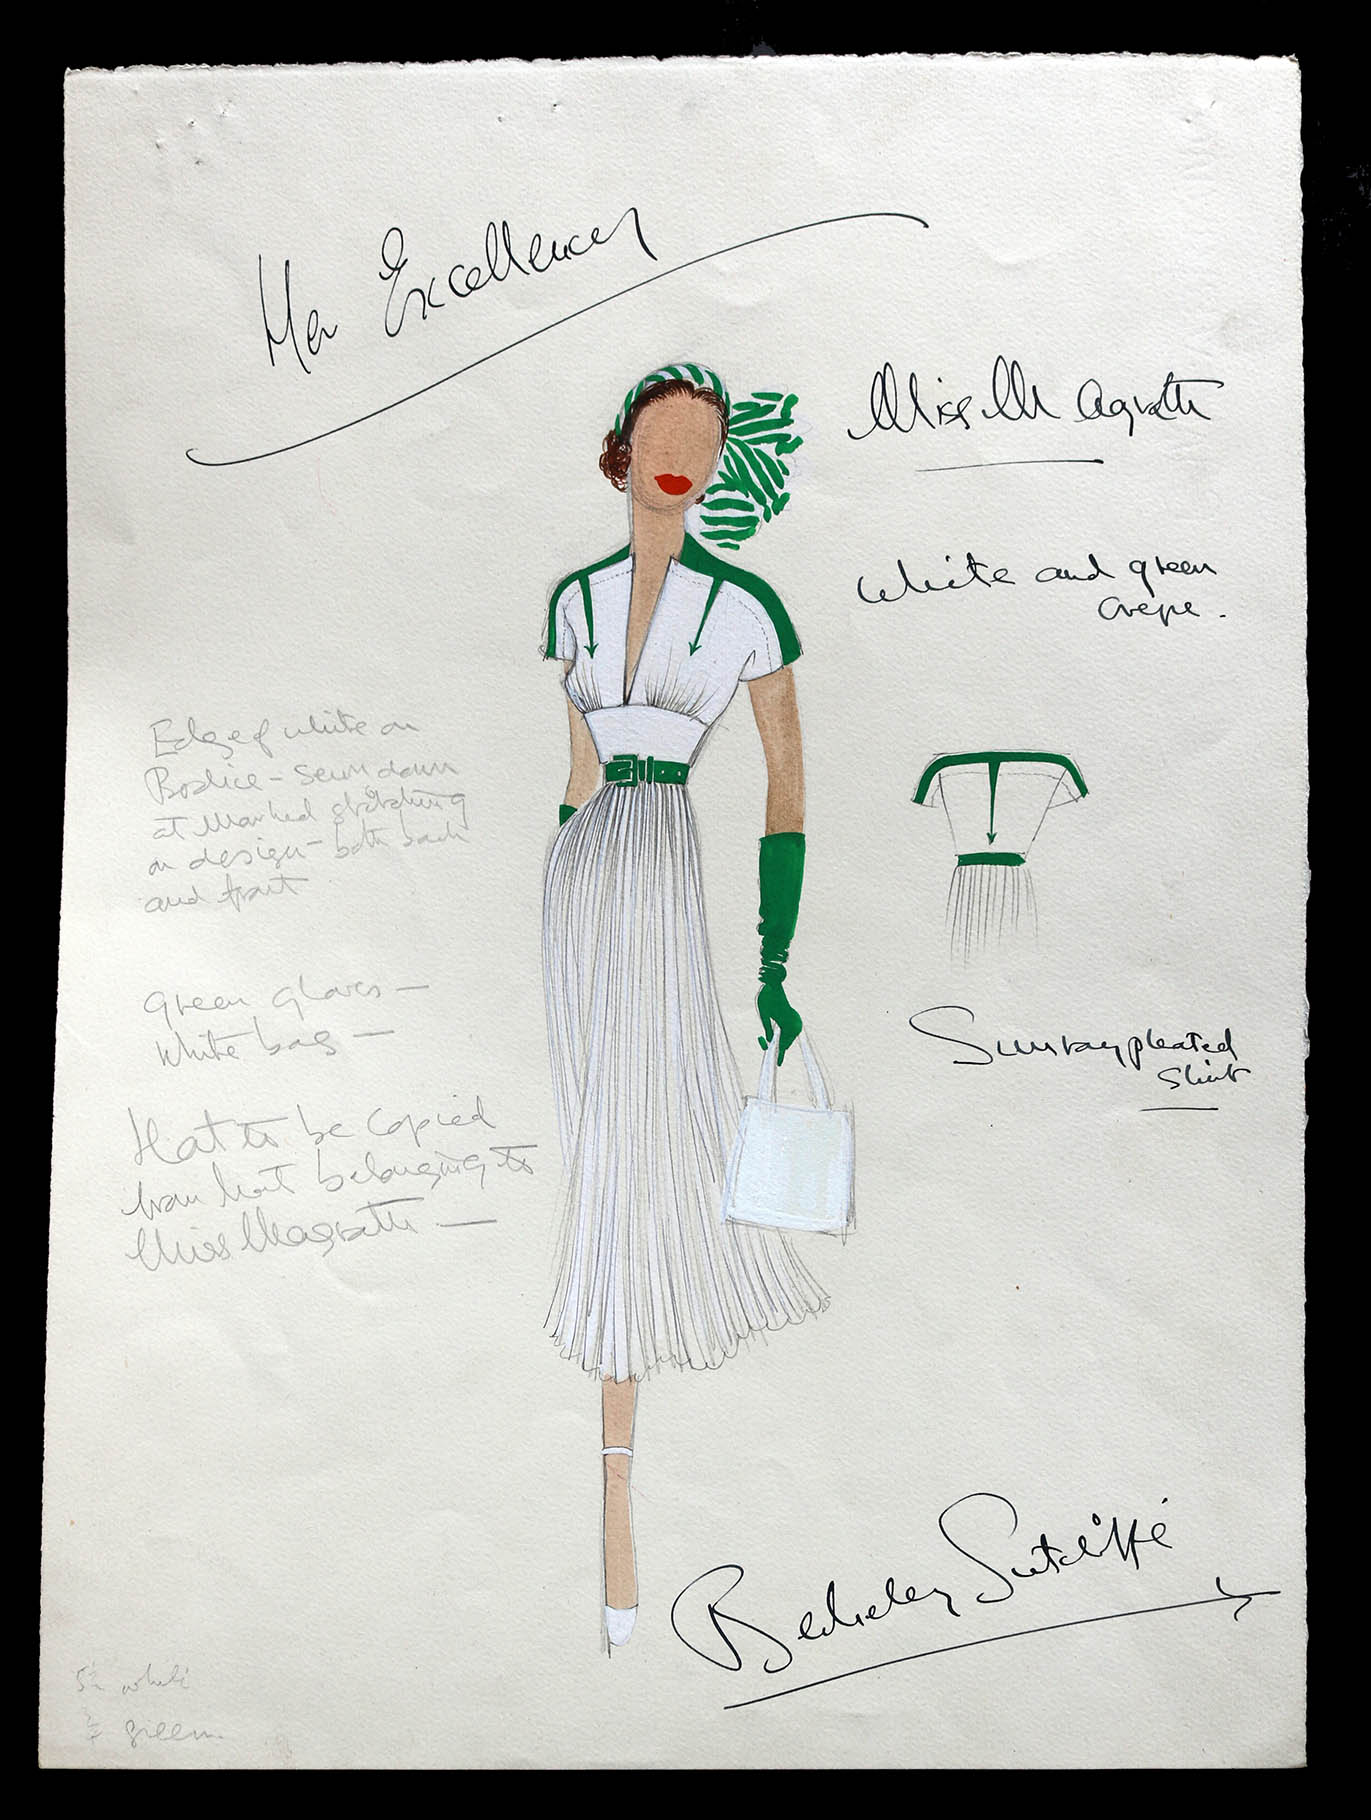 Her Excellency
Miss Magrath
White and green
crepe.
Edge of white on
Bodice - sewn down
at marked stitching
on design - both back
and front
Sunray pleated
skirt
Green gloves -
White bag -
Hat to be copied
from hat belonging to
Miss Magrath -
Berkeley Sutcliffe
5½ white
green